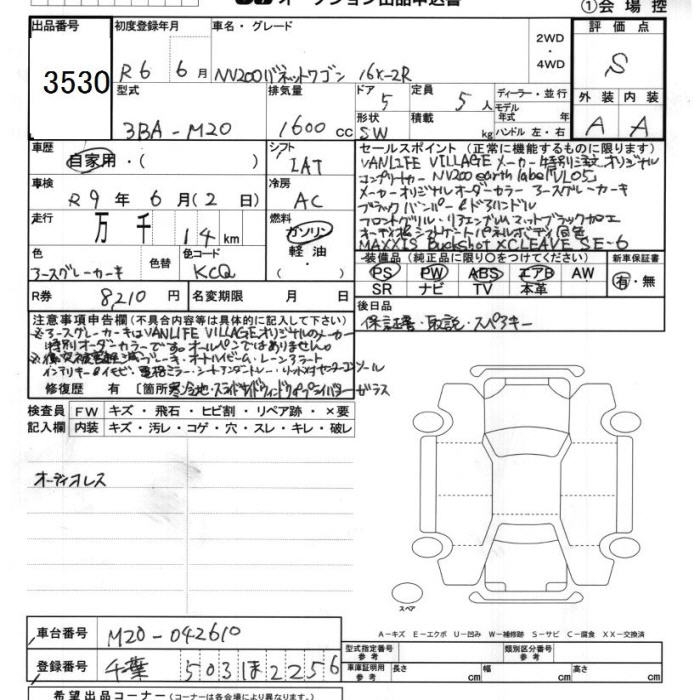 オークション出品申込書
①会場控
出品番号
3530
初度登録年月
R6 6月
車名・グレード
NV200バネットワゴン 16X-2R
2WD
・
4WD
評価点
S
型式
3BA-M20
排気量
1600 cc
ドア
5
定員
5人
形状
SW
積載
kg
ディーラー・並行
モデル
年式 年
ハンドル 左・右
外装
内装
A
A
車歴
自家用・( )
シフト
IAT
車検
R9年6月(2日)
冷房
AC
走行
万千
14km
燃料
ガソリン
軽油
( )
色
3ースグレーカーキ
色替
色コード
KCQ
R券
8,210円
名変期限 月 日
セールスポイント(正常に機能するものに限ります)
VANLIFE VILLAGEメーカー特別注文オリジナル
コンプリートカー NV200 earth label「VL05」
メーカーオリジナルオーダーカラー 3ースグレーカーキ
ブラックバンパー&ドアハンドル
フロントグリル・リアエンブレムマットブラック加工
MAXXIS Buckshot XCLEAVE SE-6
装備品(純正品に限り〇をつけてください)
PS PW ABS エアB AW
SR ナビ TV 本革
新車保証書
有・無
後日品
保証書・取説・スペアキー
注意事項申告欄(不具合内容等は具体的に記入して下さい)
※3ースグレーカーキはVANLIFE VILLAGEオリジナルのメーカー
特別オーダーカラーです。オールペンではありません。
修復歴 有 [箇所
検査員
記入欄
FW キズ・飛石・ヒビ割・リペア跡・×要
内装 キズ・汚レ・コゲ・穴・スレ・キレ・破レ
オーディオレス
スペア
A-キズ E-エクボ U-凹み W-補修跡 S-サビ C-腐食 XX-交換済
車台番号
M20-042610
登録番号
千葉 503 ほ 2256
型式指定番号
参考
類別区分番号
参考
車庫証明用
参考
長さ cm
幅 cm
高さ cm
希望出品コーナー(コーナーは各会場により異なります)